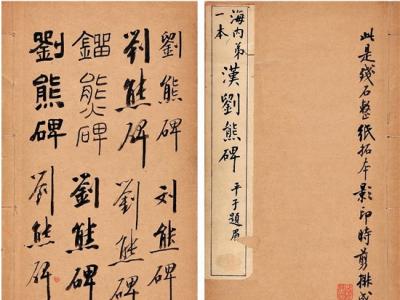 劉熊碑
劉熊碑
劉熊碑
劉熊碑
刘熊碑
劉熊碑
劉熊碑
劉熊碑
海内弟一本
漢劉熊碑
平子題眉
此是殘石整紙拓本影印時剪拼成